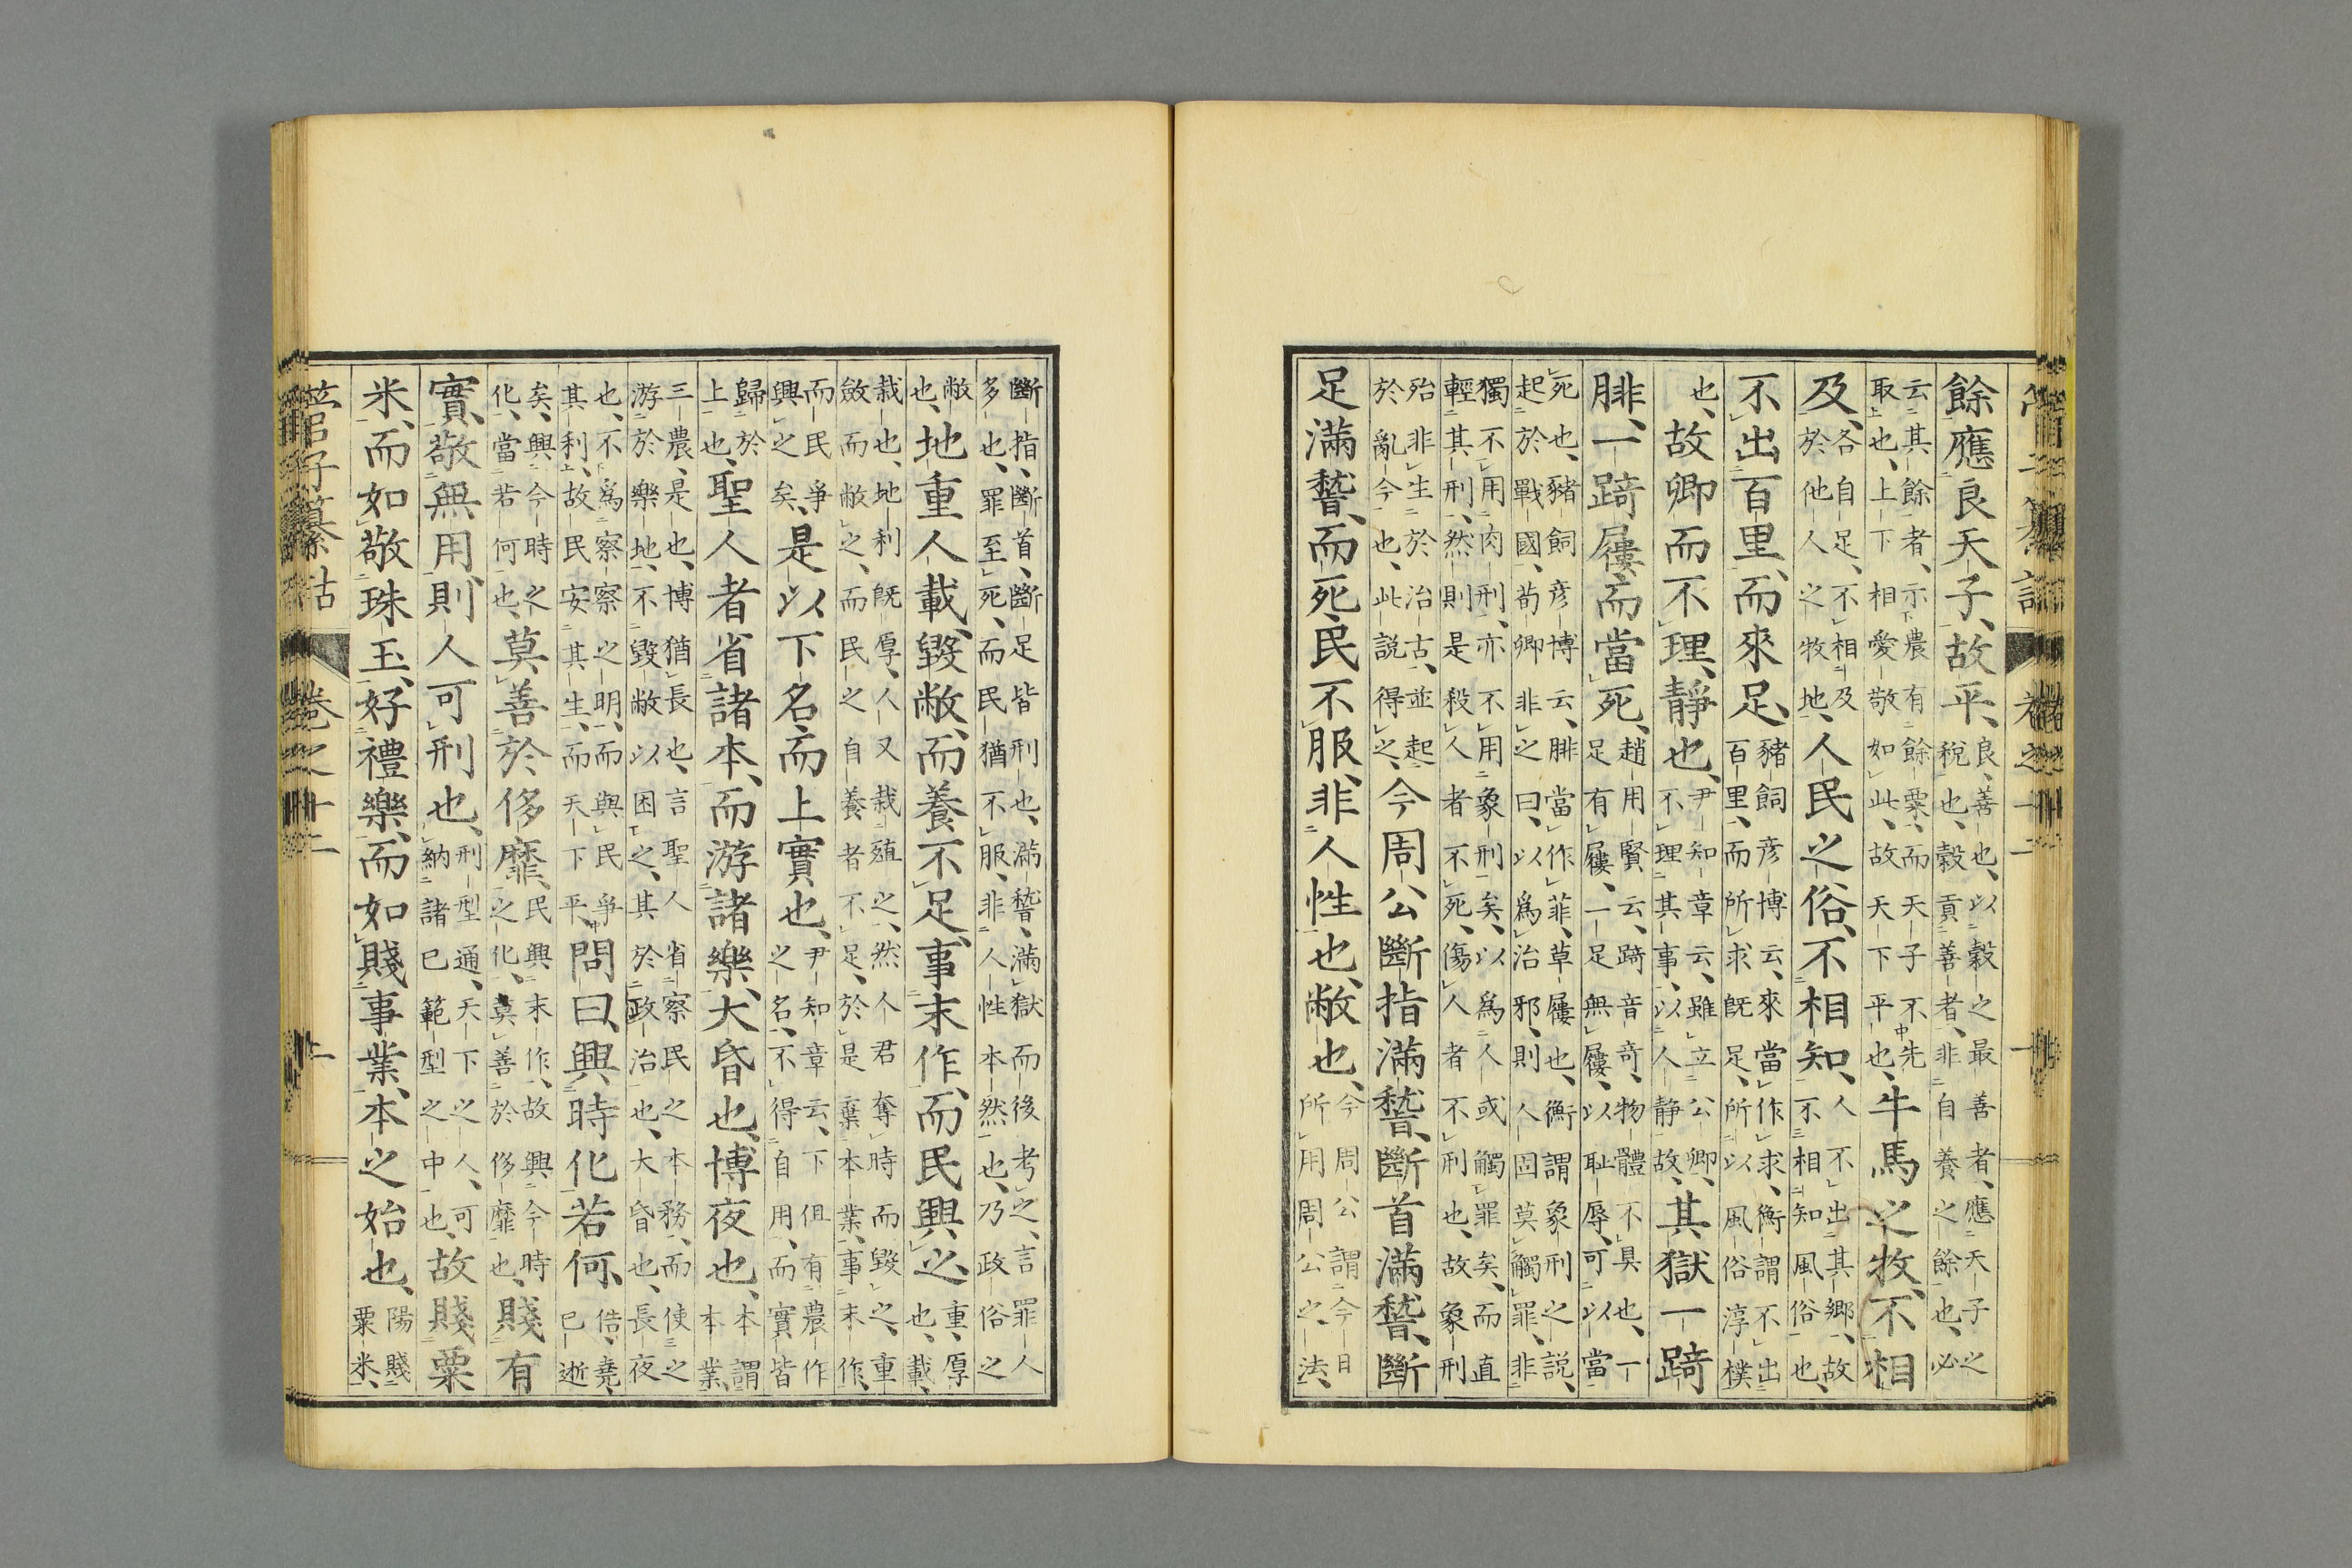 餘應良天子、故平、良、善也、以穀之最善者、應天子之
稅也、穀貢善者、非自養之餘也、必
云其餘者、示農有餘粟、而天子不先
取也、上下相愛敬如此、故天下平也、牛馬之牧、不相
及、各自足、不相及
於他人之牧地、人民之俗、不相知、人不出其鄉、故
不相知風俗也、
不出百里、而來足、豬飼彥博云、來當作求、衡謂不出
百里、而所求既足、所以風俗淳樸
也、故卿而不理、靜也、尹知章云、雖立公卿、
不理其事、以人静故、其獄一踦
腓、一踦屨、而當死、趙用賢云、踦音奇、物體不具也、一
足有屨、一足無屨、以恥辱、可以當
死也、豬飼彥博云、腓當作菲、草屨也、衡謂象刑之説、
起於戰國、荀卿非之曰、以爲治邪、則人固莫觸罪、非
獨不用肉刑、亦不用象刑矣、以爲人或觸罪矣、而直
輕其刑、然則是殺人者不死、傷人者不刑也、故象刑
殆非生於治古、並起
於亂今也、此説得之、今周公斷指滿稽、斷首滿稽、斷
足滿稽、而死民不服、非人性也、敝也、今周公謂今日
所用周公之法、
斷指、斷首、斷足皆刑也、滿稽、滿獄而後考之、言罪人
多也、罪至死、而民猶不服、非人性本然也、乃政俗之
敝
也、地重人載、毀敝、而養不足、事末作、而民興之、重、厚
也、載、
栽也、地利既厚、人又栽殖之、然人君奪時而毀之、重
斂而敝之、而民之自養者不足、於是棄本業、事末作、
而民爭
興之矣、是以下名、而上實也、尹知章云、下但有農作
之名、不得自用、而實皆
歸於
上也、聖人者省諸本、而游諸樂、大昏也、博夜也、本謂
本業、
三農、是也、博猶長也、言聖人省察民之本務、而使之
游於樂地、不毀敝以困之、其於政治也、大昏也、長夜
也、不爲察察之明、而與民爭
其利、故民安其生、而天下平、問曰、興時化若何、俈、堯
已逝
矣、興今時之
化、當若何也、莫善於侈靡、民興末作、故興今時
之化、莫善於侈靡也、賤有
實、敬無用、則人可刑也、刑型通、天下之人、可
納諸己範型之中也、故賤粟
米、而如敬珠玉、好禮樂、而如賤事業、本之始也、陽賤
粟米、
管子纂詁 卷之十二